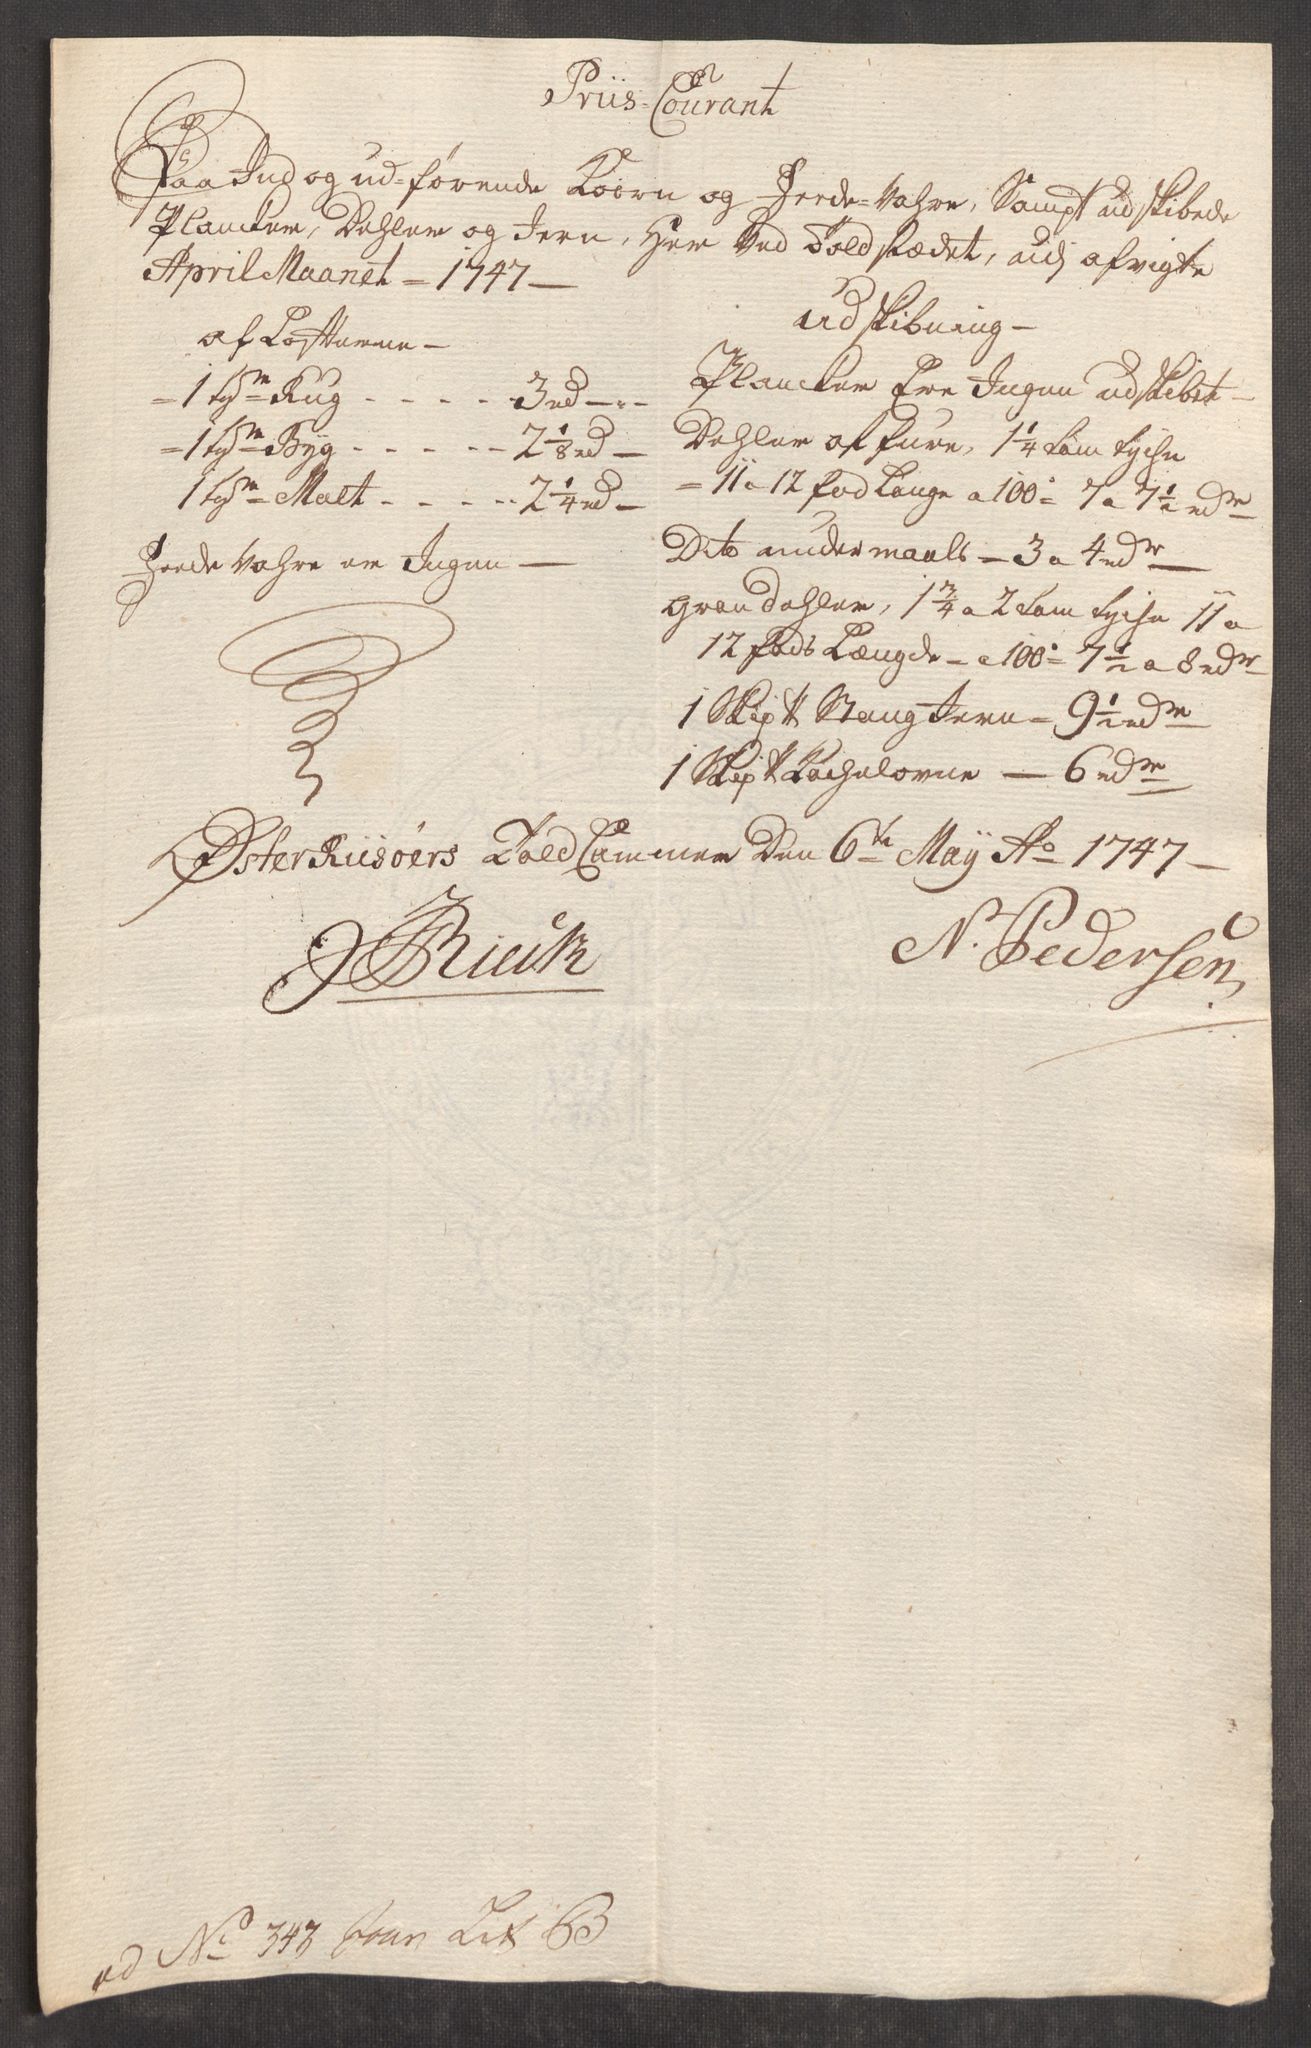 Priis-Courant
Paa Ind og ud-førende Koern og Feede-Vahre, Sampt udskibede
Plancker, Dehler og Jern, Her Ved Toldstædet, udj afvigte
April Maanet - 1747 -
af Losserne -
- 1 td Rug - - - - - 3 rd - " -
- 1 td Byg - - - - - 2 1/8 rd -
1 td Malt - - - - - 2 1/4 rd -
Feede Vahre er Ingen -
udskibning -
Plancker Ere Ingen udskibet -
Dehler af Fure, 1 1/4 tom tyche
- 11 a 12 fod Lange a 100: 7 a 7 1/2 rdr
Dito undermaals - 3 a 4 rdr
Gran dehler, 1 3/4 a 2 tom tyche 11 a
12 fods Længde - a 100: 7 1/2 a 8 rdr
1 Skip ℔ Stang Jern - 9 1/2 rdr
1 Skip ℔ Kachelovne - 6 rdr
Øster Riisøers Told Cammer Den 6te Maÿ Ao 1747 -
N. Pedersen
ad No 343 Lit B